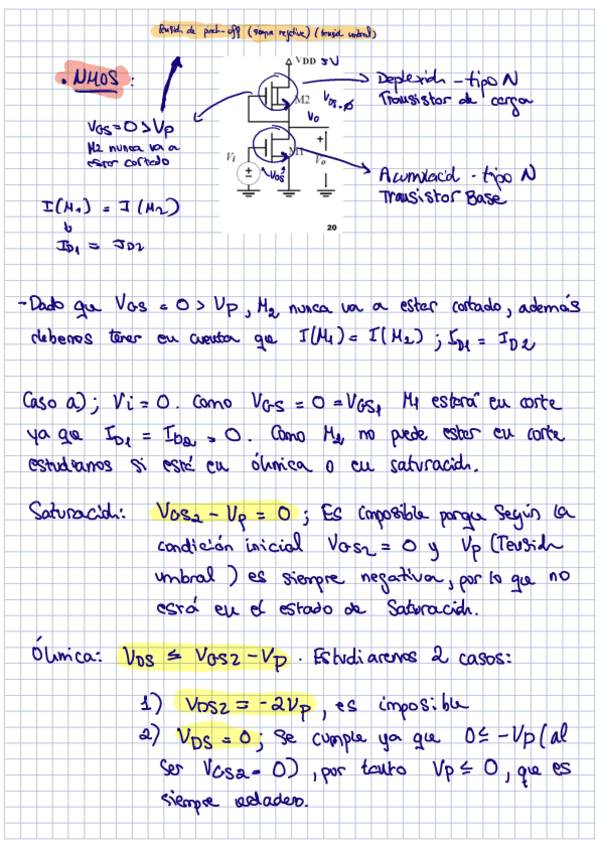 Tensión de pinch-off (siempre negativa) (tensión umbral)
• NMOS :
VDD 5V
Deplexión - tipo N
Transistor de carga
M2
VGS=0
Vo
VGS=0>Vp
M2 nunca va a
estar cortado
Vi
M1
Vo
VGS1
Acumulación - tipo N
Transistor Base
20
I(M1) = I(M2)
ID1 = ID2
-Dado que VGS = 0 > Vp, M2 nunca va a estar cortado, además
debemos tener en cuenta que I(M1) = I(M2) ; ID1 = ID2
Caso a) ; Vi = 0. Como VGS = 0 = VGS1 M1 estará en corte
ya que ID1 = ID2 = 0. Como M2 no puede estar en corte
estudiamos si está en óhmica o en saturación.
Saturación: VGS2 - Vp = 0 ; Es imposible porque según la
condición inicial VGS2 = 0 y Vp (Tensión
umbral) es siempre negativa, por lo que no
está en el estado de saturación.
Óhmica: VDS ≤ VGS2 - Vp. Estudiaremos 2 casos:
1) VDS2 = -2Vp, es imposible
2) VDS = 0 ; se cumple ya que 0 ≤ -Vp (al
ser VGS2 = 0), por tanto Vp ≤ 0, que es
siempre verdadero.